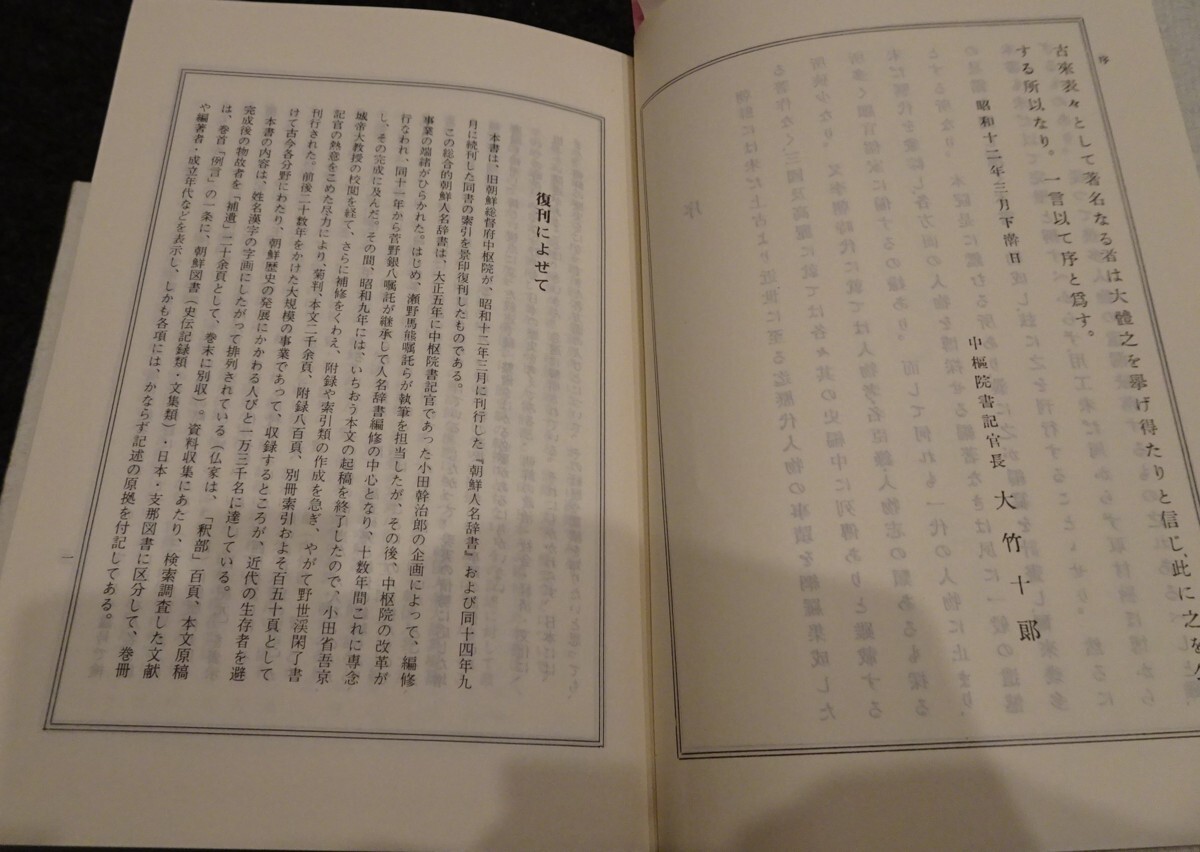 序
古來表々として著名なる者は大體之を擧げ得たりと信じ、此に之を
する所以なり。一言以て序と爲す。
昭和十二年三月下澣日
中樞院書記官長 大竹十郎
復刊によせて
本書は、旧朝鮮総督府中枢院が、昭和十二年三月に刊行した『朝鮮人名辞書』および同十四年九
月に続刊した同書の索引を景印復刊したものである。
この総合的朝鮮人名辞書は、大正五年に中枢院書記官であった小田幹治郎の企画によって、編修
事業の端緒がひらかれた。はじめ、瀬野馬熊嘱託らが執筆を担当したが、その後、中枢院の改革が
行なわれ、同十一年から菅野銀八嘱託が継承して人名辞書編修の中心となり、十数年間これに専念
し、その完成に及んだ。その間、昭和九年には、いちおう本文の起稿を終了したので、小田省吾京
城帝大教授の校閲を経て、さらに補修をくわえ、附録や索引類の作成を急ぎ、やがて野世渓閑了書
記官の熱意をこめた尽力により、菊判、本文二千余頁、附録八百頁、別冊索引およそ百五十頁として
刊行された。前後二十数年をかけた大規模の事業であって、収録するところが、近代の生存者を避
けて古今各分野にわたり、朝鮮歴史の発展にかかわる人びと一万三千名に達している。
本書の内容は、姓名漢字の字画にしたがって排列されている（仏家は、「釈部」百頁、本文原稿
完成後の物故者を「補遺」二十余頁として、巻末に別収）。資料収集にあたり、検索調査した文献
は、巻首「例言」の一条に、朝鮮図書（史伝記録類・文集類）・日本・支那図書に区分して、巻冊
や編著者・成立年代などを表示し、しかも各項には、かならず記述の原拠を付記してある。
一